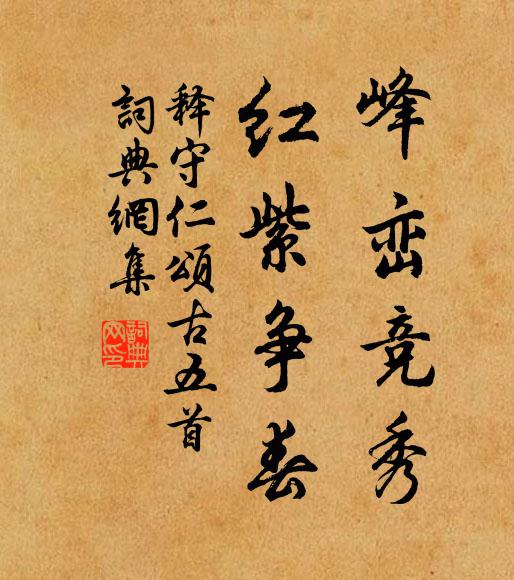 峰峦竞秀
红紫争春
释守仁颂古五首
詞典網集
詞典网印